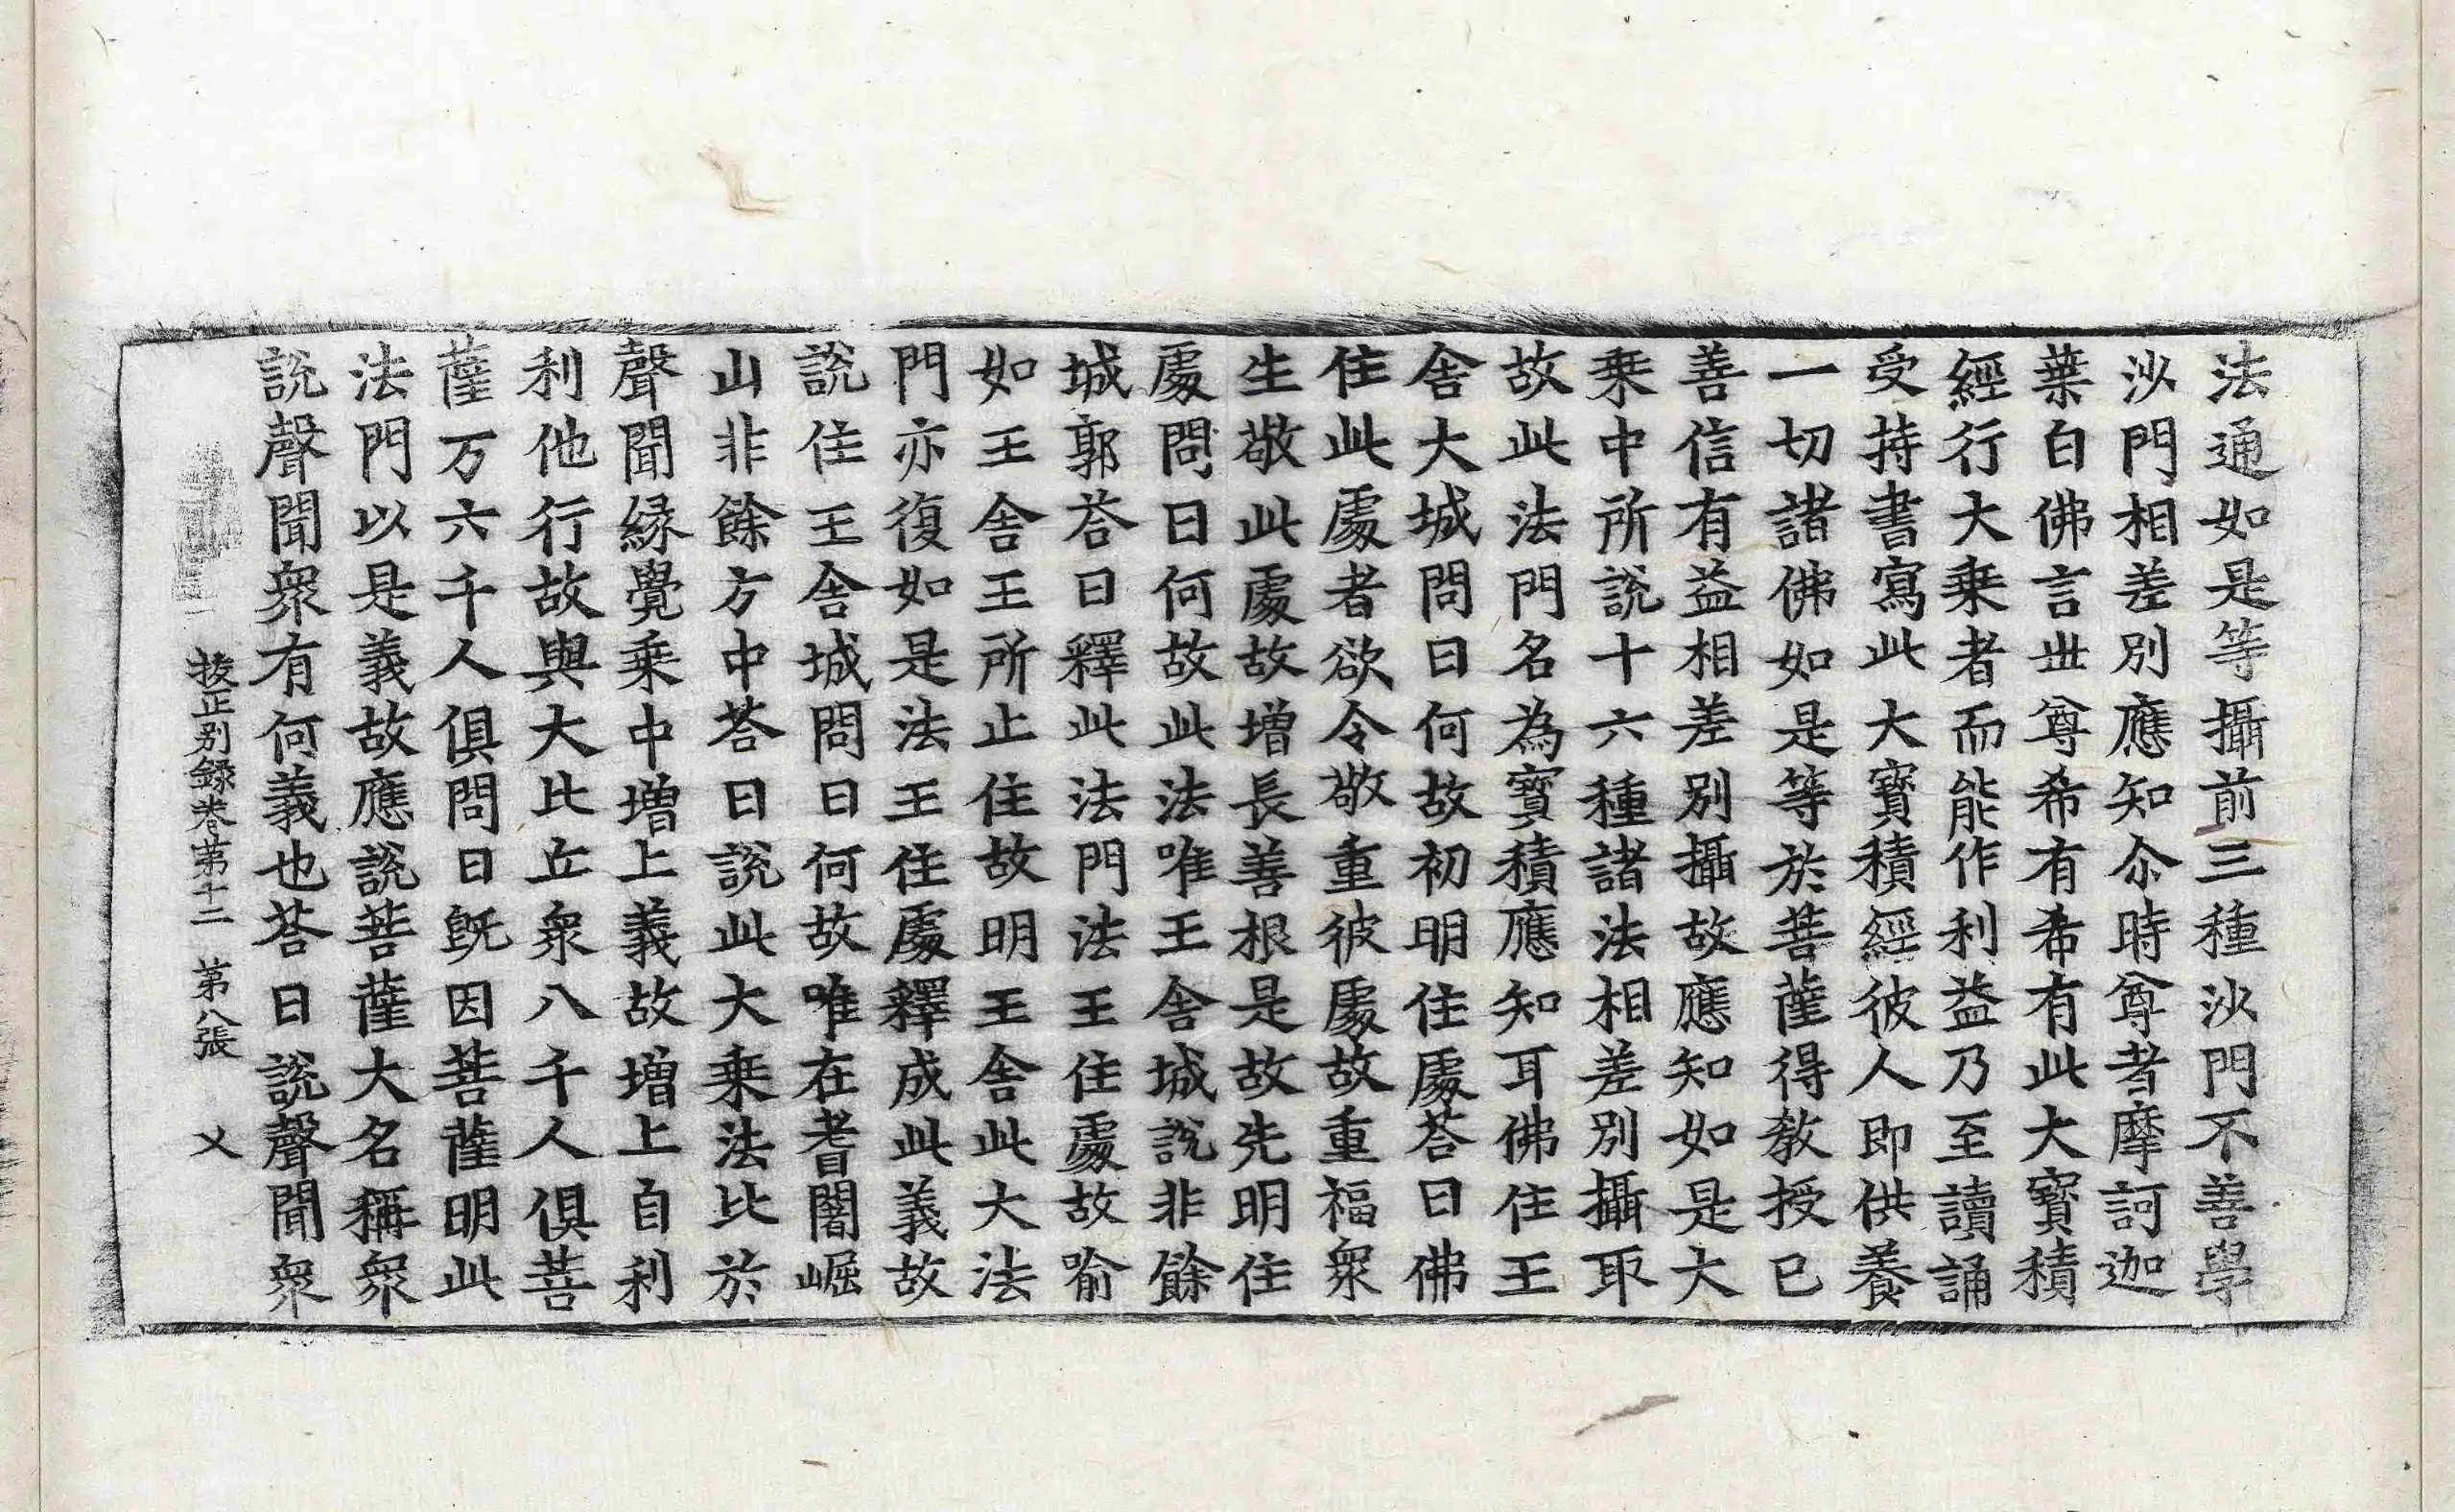 法通如是等攝前三種沙門不善學
沙門相差別應知尒時尊者摩訶迦
葉白佛言丗尊希有希有此大寶積
經行大乗者而能作利益乃至讀誦
受持書寫此大寶積經彼人即供養
一切諸佛如是等於菩薩得教授已
善信有益相差別攝故應知如是大
乗中所說十六種諸法相差別攝取
故此法門名為寶積應知耳佛住王
舍大城問曰何故初明住處荅曰佛
住此處者欲令敬重彼處故重福衆
生敬此處故增長善根是故先明住
處問曰何故此法唯王舍城說非餘
城郭荅曰釋此法門法王住處故喻
如王舍王所止住故明王舍此大法
門亦復如是法王住處釋成此義故
說住王舍城問曰何故唯在耆闍崛
山非餘方中荅曰說此大乗法比於
聲聞縁覺乗中增上義故增上自利
利他行故與大比丘衆八千人俱菩
薩万六千人俱問曰旣因菩薩明此
法門以是義故應說菩薩大名稱衆
說聲聞衆有何義也荅曰說聲聞衆
挍正別録卷第十二 第八張 㐅